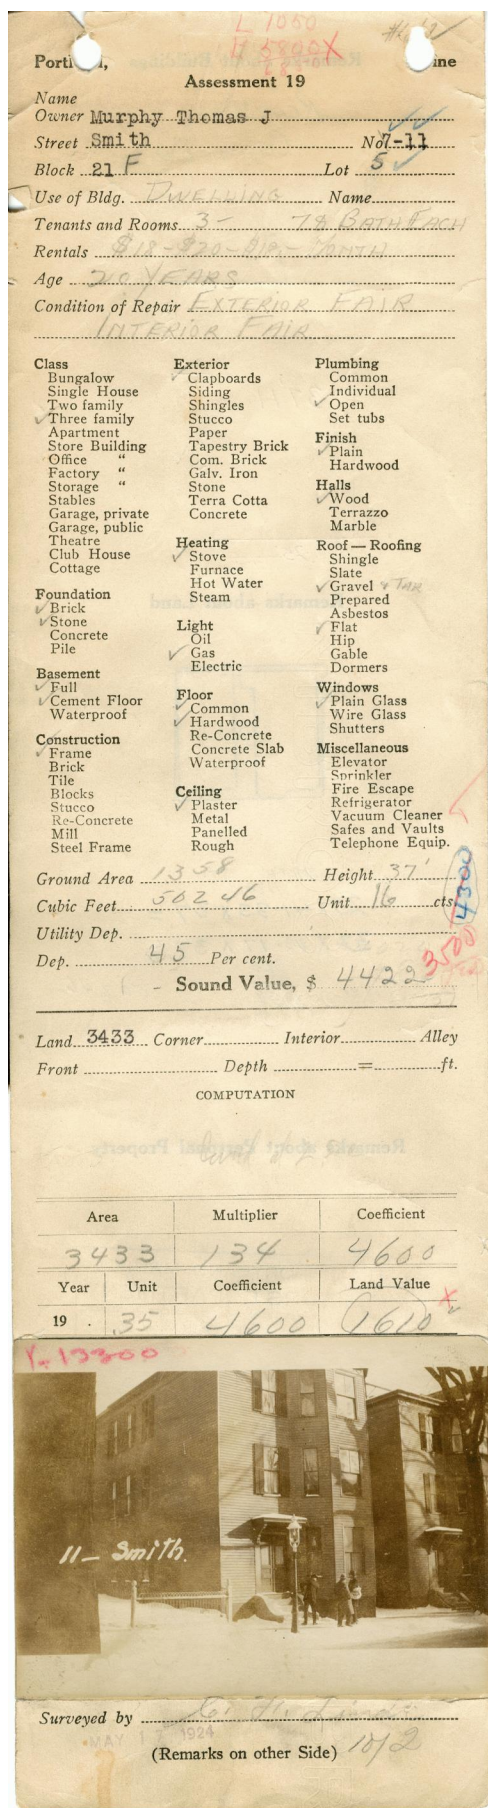 L 1050
Portl d, ine
Assessment 19
Name
Owner Murphy Thomas J
Street Smith No 7-11
Block 21 F Lot 5
Use of Bldg. DWELLING Name
Tenants and Rooms 3- 7 & BATH EACH
Rentals $18-$20-$18- MONTH
Age 20 YEARS
Condition of Repair EXTERIOR FAIR
INTERIOR FAIR
Class
Bungalow
Single House
Two family
✓ Three family
Apartment
Store Building
Office "
Factory "
Storage "
Stables
Garage, private
Garage, public
Theatre
Club House
Cottage
Foundation
✓ Brick
✓ Stone
Concrete
Pile
Basement
✓ Full
✓ Cement Floor
Waterproof
Construction
✓ Frame
Brick
Tile
Blocks
Stucco
Re-Concrete
Mill
Steel Frame
Exterior
✓ Clapboards
Siding
Shingles
Stucco
Paper
Tapestry Brick
Com. Brick
Galv. Iron
Stone
Terra Cotta
Concrete
Heating
✓ Stove
Furnace
Hot Water
Steam
Light
Oil
✓ Gas
Electric
Floor
✓ Common
✓ Hardwood
Re-Concrete
Concrete Slab
Waterproof
Ceiling
✓ Plaster
Metal
Panelled
Rough
Plumbing
Common
Individual
✓ Open
Set tubs
Finish
✓ Plain
Hardwood
Halls
✓ Wood
Terrazzo
Marble
Roof — Roofing
Shingle
Slate
✓ Gravel & TAR
Prepared
Asbestos
✓ Flat
Hip
Gable
Dormers
Windows
✓ Plain Glass
Wire Glass
Shutters
Miscellaneous
Elevator
Sprinkler
Fire Escape
Refrigerator
Vacuum Cleaner
Safes and Vaults
Telephone Equip.
Ground Area 1358 Height 37'
Cubic Feet 50246 Unit 16 cts
4300
Utility Dep.
Dep. 45 Per cent.
3500
Sound Value, $ 4422
Land 3433 Corner Interior Alley
Front Depth = ft.
COMPUTATION
Area Multiplier Coefficient
3433 134 4600
Year Unit Coefficient Land Value
19 . 35 4600 1610 X
Y-13300
11- Smith.
Surveyed by
MAY 1924
(Remarks on other Side) 10/2